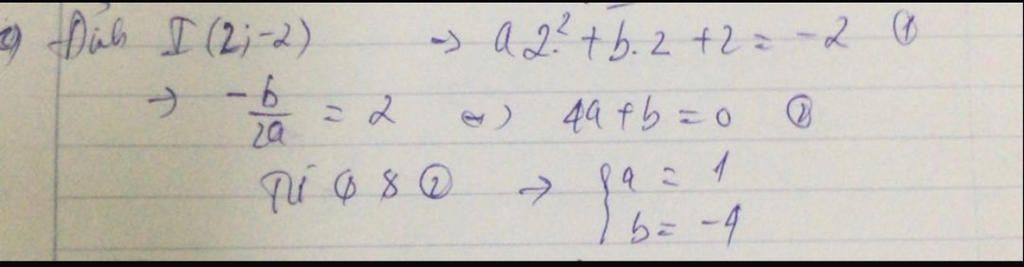 c) Đỉnh I (2; -2) → a 2.² + b.2 + 2 = -2 ①
→ -b/2a = 2 ⇔ 4a + b = 0 ②
Từ ① & ② → { a = 1
b = -4